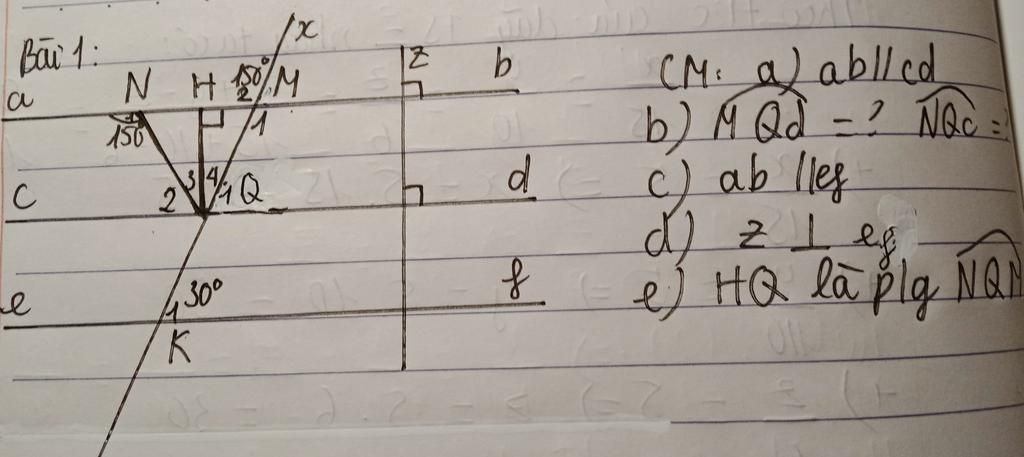 Bài 1:
x
z
b
a
N
H
150°
2
M
1
150
CM: a) ab//cd
b) MQd = ? NQc = ?
c) ab //ef
d) z ⊥ ef
e) HQ là p/g NQM
c
2
3
4
1
Q
d
e
1
30°
f
K